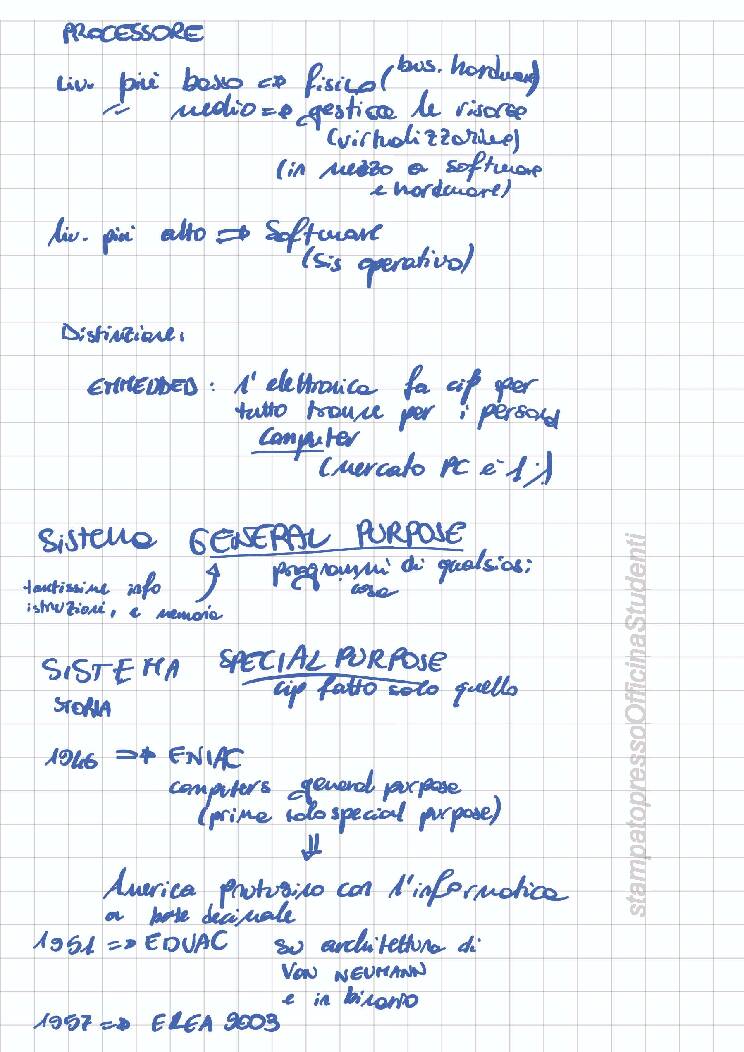 PROCESSORE
Liv. più basso => fisico (bus. hardware)
medio => gestisce le risorse
(virtualizzazione)
(in mezzo a software
e hardware)
liv. più alto => Software
(sis operativo)
Distinzione:
EMMEDDED: l'elettronica fa cip per
tutto tranne per i personal
computer
(mercato PC è 1%)
Sistema GENERAL PURPOSE
programmi di qualsiasi
cosa
tantissime info
istruzioni, e memoria
SISTEMA SPECIAL PURPOSE
cip fatto solo quello
STORIA
1946 => ENIAC
computers general purpose
(prima solo special purpose)
⇓
America con l'informatica
a base decimale
1951 => EDVAC su architettura di
VON NEUMANN
e in binario
1957 => ELEA 9003
stampatopressoOfficinaStudenti